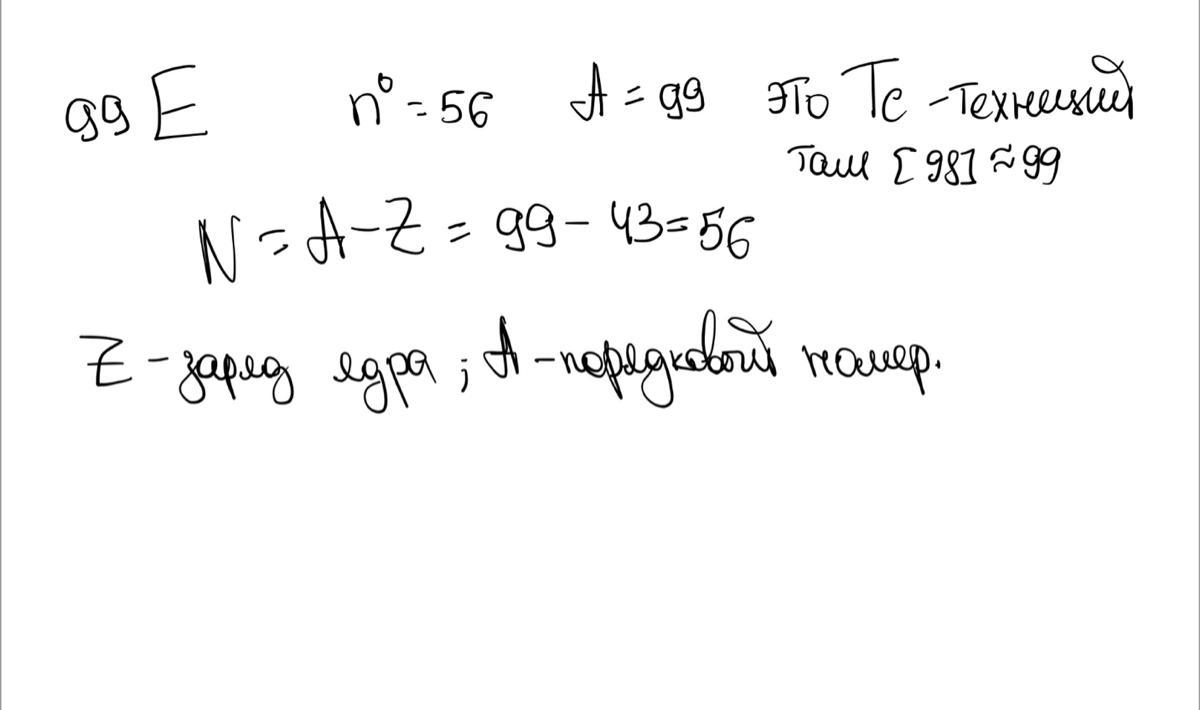 99 E n⁰ = 56 A = 99 это Tc - Технеций
там [98] ≈ 99
N = A - Z = 99 - 43 = 56
Z - заряд ядра ; A - порядковый номер.